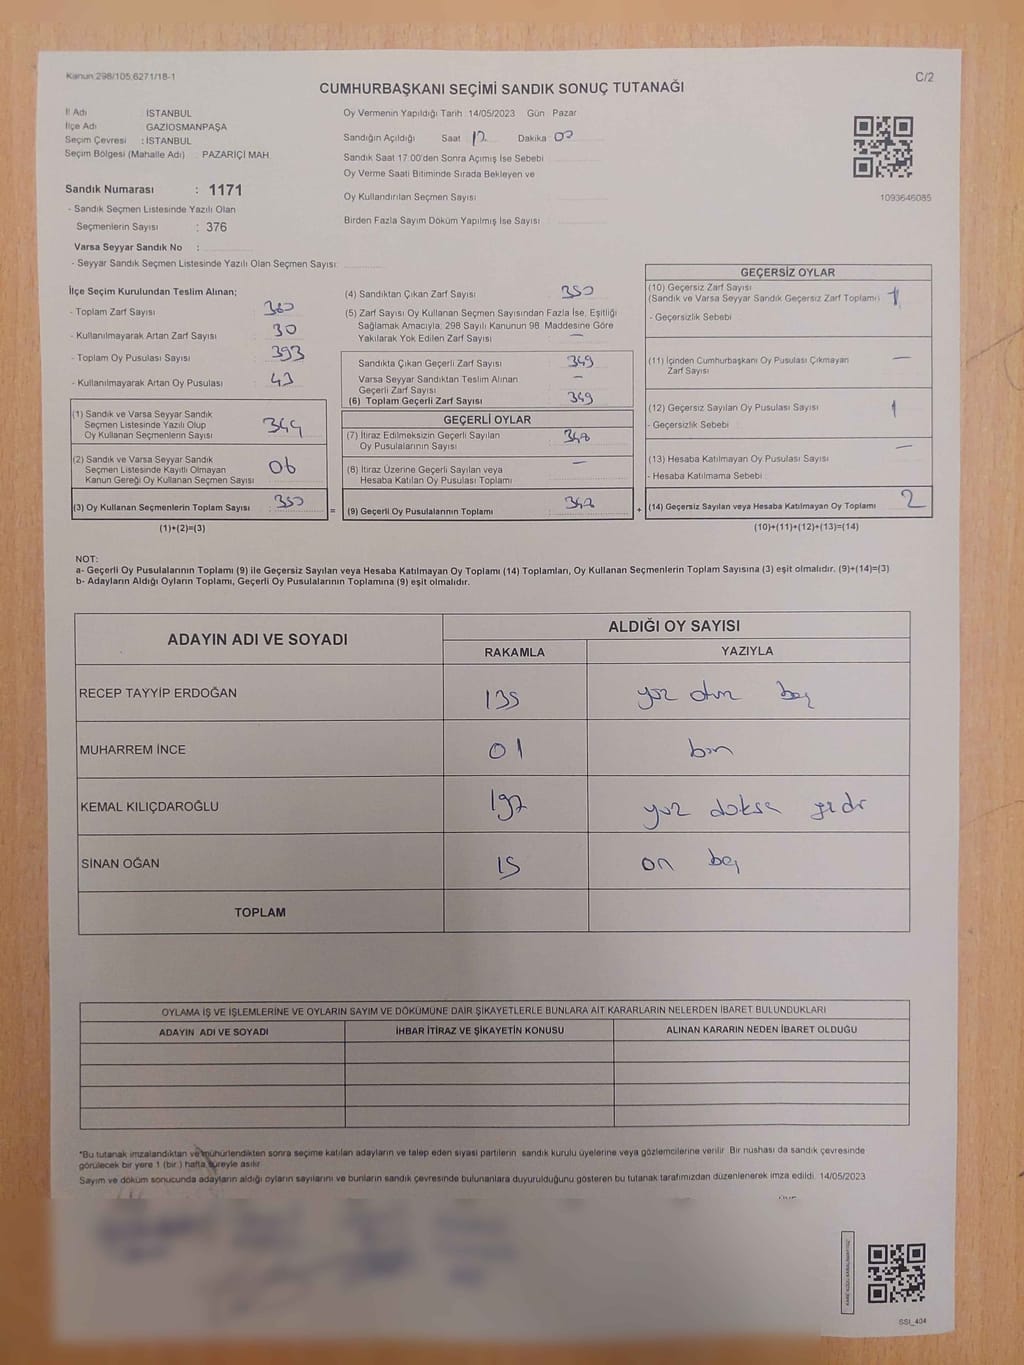 Kanun 298/105,6271/18-1
C/2
CUMHURBAŞKANI SEÇİMİ SANDIK SONUÇ TUTANAĞI
İl Adı : İSTANBUL
İlçe Adı : GAZİOSMANPAŞA
Seçim Çevresi : İSTANBUL
Seçim Bölgesi (Mahalle Adı) : PAZARİÇİ MAH.
Sandık Numarası : 1171
- Sandık Seçmen Listesinde Yazılı Olan
Seçmenlerin Sayısı : 376
Varsa Seyyar Sandık No :
- Seyyar Sandık Seçmen Listesinde Yazılı Olan Seçmen Sayısı:
Oy Vermenin Yapıldığı Tarih : 14/05/2023 Gün Pazar
Sandığın Açıldığı Saat : 17 Dakika : 00
Sandık Saat 17:00'den Sonra Açımış İse Sebebi
Oy Verme Saati Bitiminde Sırada Bekleyen ve
Oy Kullandırılan Seçmen Sayısı
Birden Fazla Sayım Döküm Yapılmış İse Sayısı :
1093646085
İlçe Seçim Kurulundan Teslim Alınan;
- Toplam Zarf Sayısı : 380
- Kullanılmayarak Artan Zarf Sayısı : 30
- Toplam Oy Pusulası Sayısı : 393
- Kullanılmayarak Artan Oy Pusulası : 43
(1) Sandık ve Varsa Seyyar Sandık
Seçmen Listesinde Yazılı Olup
Oy Kullanan Seçmenlerin Sayısı : 344
(2) Sandık ve Varsa Seyyar Sandık
Seçmen Listesinde Kayıtlı Olmayan
Kanun Gereği Oy Kullanan Seçmen Sayısı : 06
(3) Oy Kullanan Seçmenlerin Toplam Sayısı : 350
(1)+(2)=(3)
=
(4) Sandıktan Çıkan Zarf Sayısı : 350
(5) Zarf Sayısı Oy Kullanan Seçmen Sayısından Fazla İse, Eşitliği
Sağlamak Amacıyla, 298 Sayılı Kanunun 98. Maddesine Göre
Yakılarak Yok Edilen Zarf Sayısı : —
Sandıkta Çıkan Geçerli Zarf Sayısı : 349
Varsa Seyyar Sandıktan Teslim Alınan
Geçerli Zarf Sayısı : —
(6) Toplam Geçerli Zarf Sayısı : 349
GEÇERLİ OYLAR
(7) İtiraz Edilmeksizin Geçerli Sayılan
Oy Pusulalarının Sayısı : 348
(8) İtiraz Üzerine Geçerli Sayılan veya
Hesaba Katılan Oy Pusulası Toplamı : —
(9) Geçerli Oy Pusulalarının Toplamı : 348
+
GEÇERSİZ OYLAR
(10) Geçersiz Zarf Sayısı
(Sandık ve Varsa Seyyar Sandık Geçersiz Zarf Toplamı) : 1
- Geçersizlik Sebebi :
(11) İçinden Cumhurbaşkanı Oy Pusulası Çıkmayan
Zarf Sayısı : —
(12) Geçersiz Sayılan Oy Pusulası Sayısı : 1
- Geçersizlik Sebebi :
(13) Hesaba Katılmayan Oy Pusulası Sayısı : —
- Hesaba Katılmama Sebebi :
(14) Geçersiz Sayılan veya Hesaba Katılmayan Oy Toplamı : 2
(10)+(11)+(12)+(13)=(14)
NOT:
a- Geçerli Oy Pusulalarının Toplamı (9) ile Geçersiz Sayılan veya Hesaba Katılmayan Oy Toplamı (14) Toplamları, Oy Kullanan Seçmenlerin Toplam Sayısına (3) eşit olmalıdır. (9)+(14)=(3)
b- Adayların Aldığı Oyların Toplamı, Geçerli Oy Pusulalarının Toplamına (9) eşit olmalıdır.
ADAYIN ADI VE SOYADI
ALDIĞI OY SAYISI
RAKAMLA YAZIYLA
RECEP TAYYİP ERDOĞAN 135 yüz otuz beş
MUHARREM İNCE 01 bir
KEMAL KILIÇDAROĞLU 197 yüz doksan yedi
SİNAN OĞAN 15 on beş
TOPLAM
OYLAMA İŞ VE İŞLEMLERİNE VE OYLARIN SAYIM VE DÖKÜMÜNE DAİR ŞİKAYETLERLE BUNLARA AİT KARARLARIN NELERDEN İBARET BULUNDUKLARI
ADAYIN ADI VE SOYADI İHBAR İTİRAZ VE ŞİKAYETİN KONUSU ALINAN KARARIN NEDEN İBARET OLDUĞU
*Bu tutanak imzalandıktan ve mühürlendikten sonra seçime katılan adayların ve talep eden siyasi partilerin sandık kurulu üyelerine veya gözlemcilerine verilir. Bir nüshası da sandık çevresinde
görülecek bir yere 1 (bir ) hafta süreyle asılır.
Sayım ve döküm sonucunda adayların aldığı oyların sayılarını ve bunların sandık çevresinde bulunanlara duyurulduğunu gösteren bu tutanak tarafımızdan düzenlenerek imza edildi. 14/05/2023
SSI_404